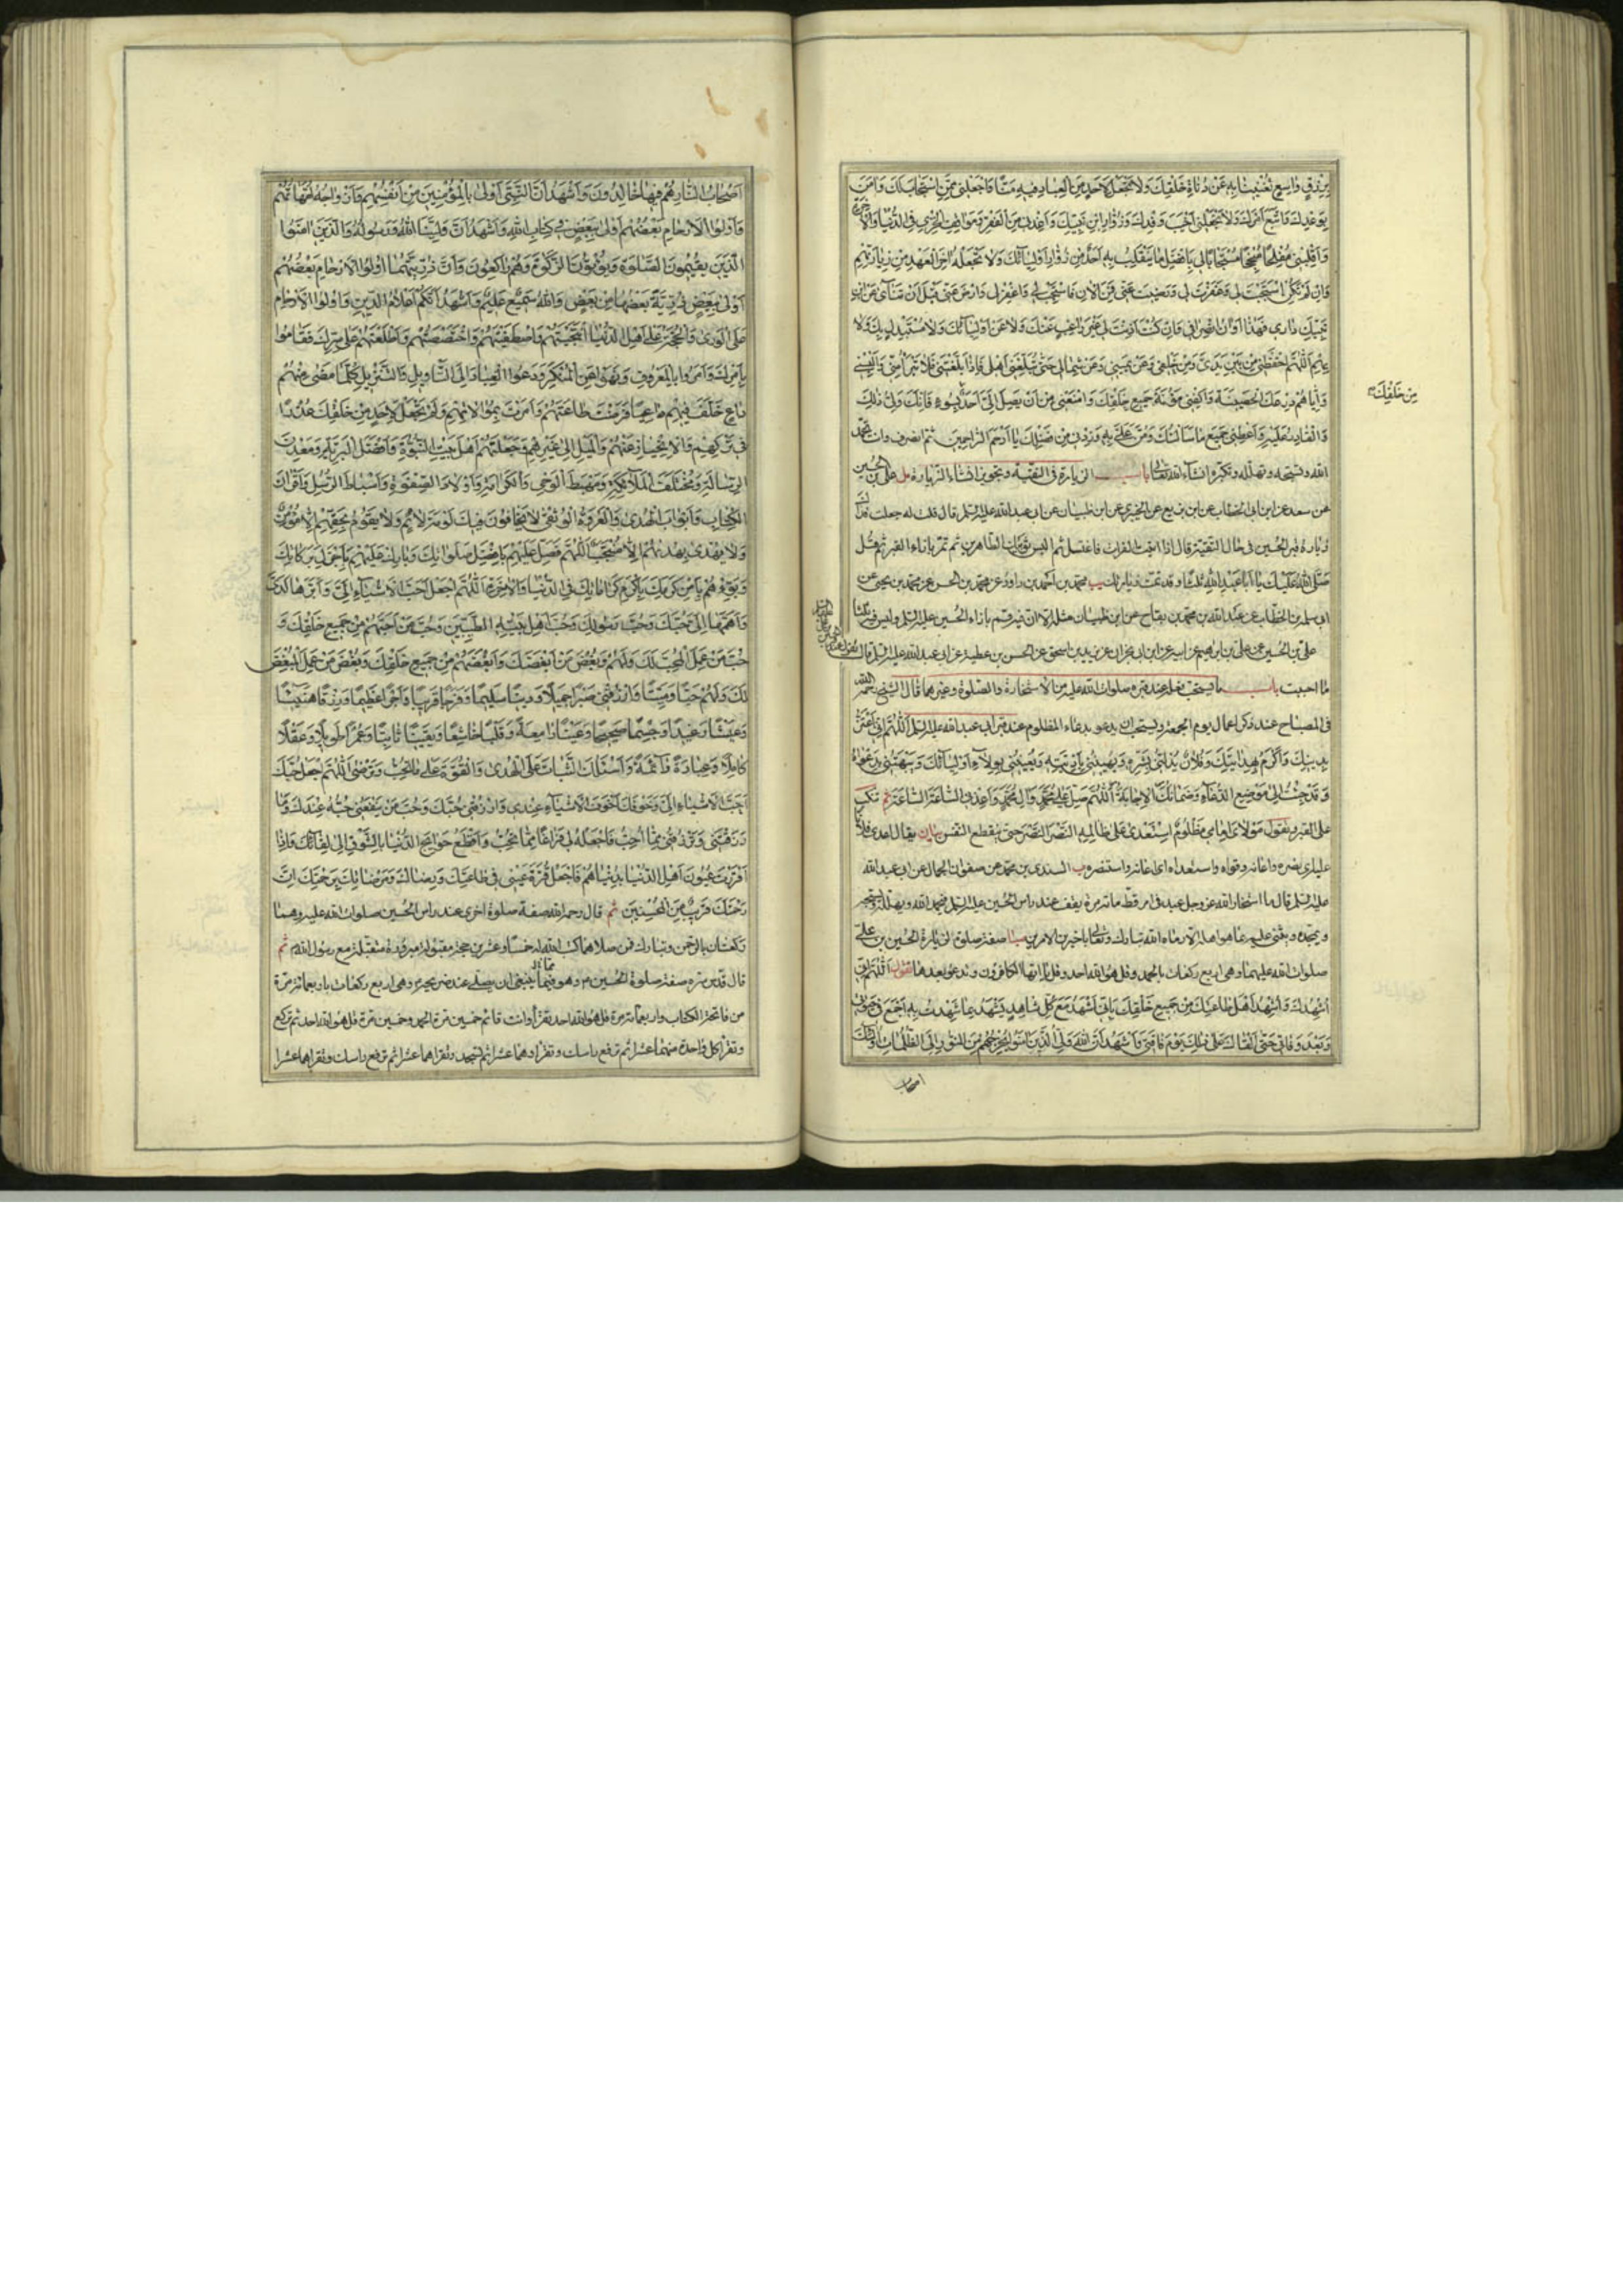 برزق واسع تغنينا به عن دناة خلقك ولا تجعل لاحد من العباد فيه منا فاجعلني ممن استجاب لك وامن
بوعدك واتبع امرك ولا تجعلني اخيب وفدك وزوار ابن نبيك واعذني من الفقر ومواقف الخزي في الدنيا والاخرة
واقلبني مفلحا منجحا مستجابا لي بافضل ما ينقلب به احد من زوار اوليائك ولا تجعله اخر العهد من زيارتهم
فان لم تكن استجبت لي وغفرت لي ورضيت عني فمن الان فاستجب لي واغفر لي وارض عني قبل ان تناى عن ابن
نبيك داري فهذا اوان انصرافي فان كنت اذنت لي غير راغب عنك ولا عن اوليائك ولا مستبدل بك ولا
بهم اللهم احفظني من بين يدي ومن خلفي وعن يميني وعن شمالي حتى تبلغني اهلي فاذا بلغتني فلا تبرا مني والبسني
واياهم درعك الحصينة واكفني مؤنة جميع خلقك وامنعني من ان يصل الي احد بسوء فانك ولي ذلك
من خلقك
والقادر عليه واعطني جميع ما سالتك ومن علي به وزدني من فضلك يا ارحم الراحمين ثم انصرف وانت تحمد
الله وتسبحه وتهلله وتكبره انشاء الله تعالى باب الزيارة في التقية وتجويز انشاء الزيارة مل علي بن الحسين
عن سعد عن ابن ابي الخطاب عن ابن بزيع عن الخيبري عن ابن ظبيان عن ابي عبد الله عليه السلم قال قلت له جعلت فداك
زيارة قبر الحسين في حال التقية قال اذا اتيت الفرات فاغتسل ثم البس ثوبيك الطاهرين ثم تمر بازاء القبر ثم قل
صلى الله عليك يا ابا عبد الله ثلثا وقد تمت زيارتك يب محمد بن احمد بن داود عن محمد بن الحسن عن محمد بن يحيى عن
ابي الخطاب عن عبد الله بن محمد عن ابن ظبيان مثله الا ان فيه وقم بازاء الحسين عليه السلم وليس فيه ثلثا
علي بن الحسين عن علي بن ابرهيم عن ابيه عن ابن ابي نجران عن يزيد بن اسحق عن الحسن بن عطية عن ابي عبد الله عليه السلم قال
ما احببت باب ما يستحب فعله عند قبره صلوات الله عليه من الاستخارة والصلوة وغيرهما قال الشيخ رحمه الله
في المصباح عند ذكر اعمال يوم الجمعة ويستحب ان يدعو بدعاء المظلوم عند قبر ابي عبد الله عليه السلم اللهم اني اعتز
بدينك واكرم بهدايتك وفلان يذلني بشره ويهينني باذيته ويعيبني بولاء اوليائك ويبهتني بدعواه
وقد جئت الى موضع الدعاء وضمانك الاجابة اللهم صل على محمد وال محمد واعدني الساعة الساعة ثم تنكب
على القبر وتقول مولاي امامي مظلوم استعدى على ظالمه النصر النصر حتى ينقطع النفس بيان يقال اعدى فلانا
عليه اي نصره واعانه وقواه واستعداه اي استعانه واستنصره ب السندي بن محمد عن صفوان الجمال عن ابي عبد الله
عليه السلم قال ما استخار الله عز وجل عبد في امر قط مائة مرة يقف عند راس الحسين عليه السلم فيحمد الله ويهلله ويسبحه
ويمجده ويثني عليه بما هو اهله الا رماه الله تبارك وتعالى باخير الامرين صبا صفة صلوة لزيارة الحسين بن علي
صلوات الله عليهما وهي اربع ركعات بالحمد وقل هو الله احد وقل يا ايها الكافرون وتدعو بعدها تقول اللهم اني
اشهدك واشهد اهل طاعتك من جميع خلقك باني اشهد مع كل شاهد يشهد بما شهدت به اجمع في حيوتي
وبعد وفاتي حتى القاك على ذلك يوم فاقتي واشهد ان الله ولي الذين امنوا يخرجهم من النور الى الظلمات اولئك
اصحاب
اصحاب النار هم فيها خالدون واشهد ان النبي اولى بالمؤمنين من انفسهم وازواجه امهاتهم
واولوا الارحام بعضهم اولى ببعض في كتاب الله واشهد ان ولينا الله ورسوله والذين امنوا
الذين يقيمون الصلوة ويؤتون الزكوة وهم راكعون وان ذريتهما اولوا الارحام بعضهم
اولى ببعض ذرية بعضها من بعض والله سميع عليم واشهد انكم اعلام الدين واولوا الارحام
على الورى والحجة على اهل الدنيا انتجبتهم واصطفيتهم واختصصتهم واطلعتهم على سرك فقاموا
بامرك وامروا بالمعروف ونهوا عن المنكر ودعوا العباد الى التاويل والتنزيل كلما مضى منهم
داع خلف فيهم داعيا فرضت طاعتهم وامرت بموالاتهم ولم تجعل لاحد من خلقك عذرا
في تركهم والانحياز عنهم والميل الى غيرهم وجعلتهم اهل بيت النبوة وافضل البرية ومعدن
الرسالة ومختلف الملائكة ومهبط الوحي والكرامة واولاد الصفوة واسباط الرسل واقران
الكتاب وابواب الهدى والعروة الوثقى لا يخافون فيك لومة لائم ولا يقوم بحقهم الا مؤمن
ولا يهدى بهداهم الا منتجب اللهم فصل عليهم بافضل صلواتك وبارك عليهم باجزل بركاتك
وبوئهم من كرمك باكرم كراماتك في الدنيا والاخرة اللهم اجعل احب الاشياء الي وابرها لدي
واهمها الي حبك وحب رسولك وحب اهل بيته الطيبين وحب من احبهم من جميع خلقك و
حب من عمل المحب لك ولهم وبغض من ابغضك وابغضهم من جميع خلقك وبغض من عمل المبغض
لك ولهم حيا وميتا وارزقني صبرا جميلا ودينا سليما وفرجا قريبا واجرا عظيما ورزقا هنيئا
وعيشا رغيدا وجسما صحيحا وعينا دامعة وقلبا خاشعا ويقينا ثابتا وعمرا طويلا وعقلا
كاملا وعبادة دائمة واسئلك الثبات على الهدى والقوة على ما تحب وترضى اللهم اجعل حبك
احب الاشياء الي وخوفك اخوف الاشياء عندي وارزقني حبك وحب من ينفعني حبه عندك وما
رزقتني وترزقني مما احب فاجعله لي فراغا مما تحب واقطع حوائج الدنيا بالشوق الى لقائك واذا
اقررت عيون اهل الدنيا بدنياهم فاجعل قرة عيني في طاعتك ورضاك ومرضاتك برحمتك ان
رحمتك قريب من المحسنين ثم قال رحمه الله صفة صلوة اخرى عند راس الحسين صلوات الله عليه وهما
ركعتان بالرحمن وتبارك فمن صلاهما كتب الله له خمسا وعشرين حجة مقبولة مبرورة متقبلة مع رسول الله ثم
قال قدس سره صفة صلوة الحسين وهو فيما ينبغي ان يصلي عند ضريحه وهي اربع ركعات باربعمائة مرة
من فاتحة الكتاب واربعمائة مرة قل هو الله احد تقرا وانت قائم خمسين مرة الحمد وخمسين مرة قل هو الله احد ثم تركع
وتقرا كل واحدة منهما عشرا ثم ترفع راسك وتقراهما عشرا ثم تسجد وتقراهما عشرا ثم ترفع راسك وتقراهما عشرا